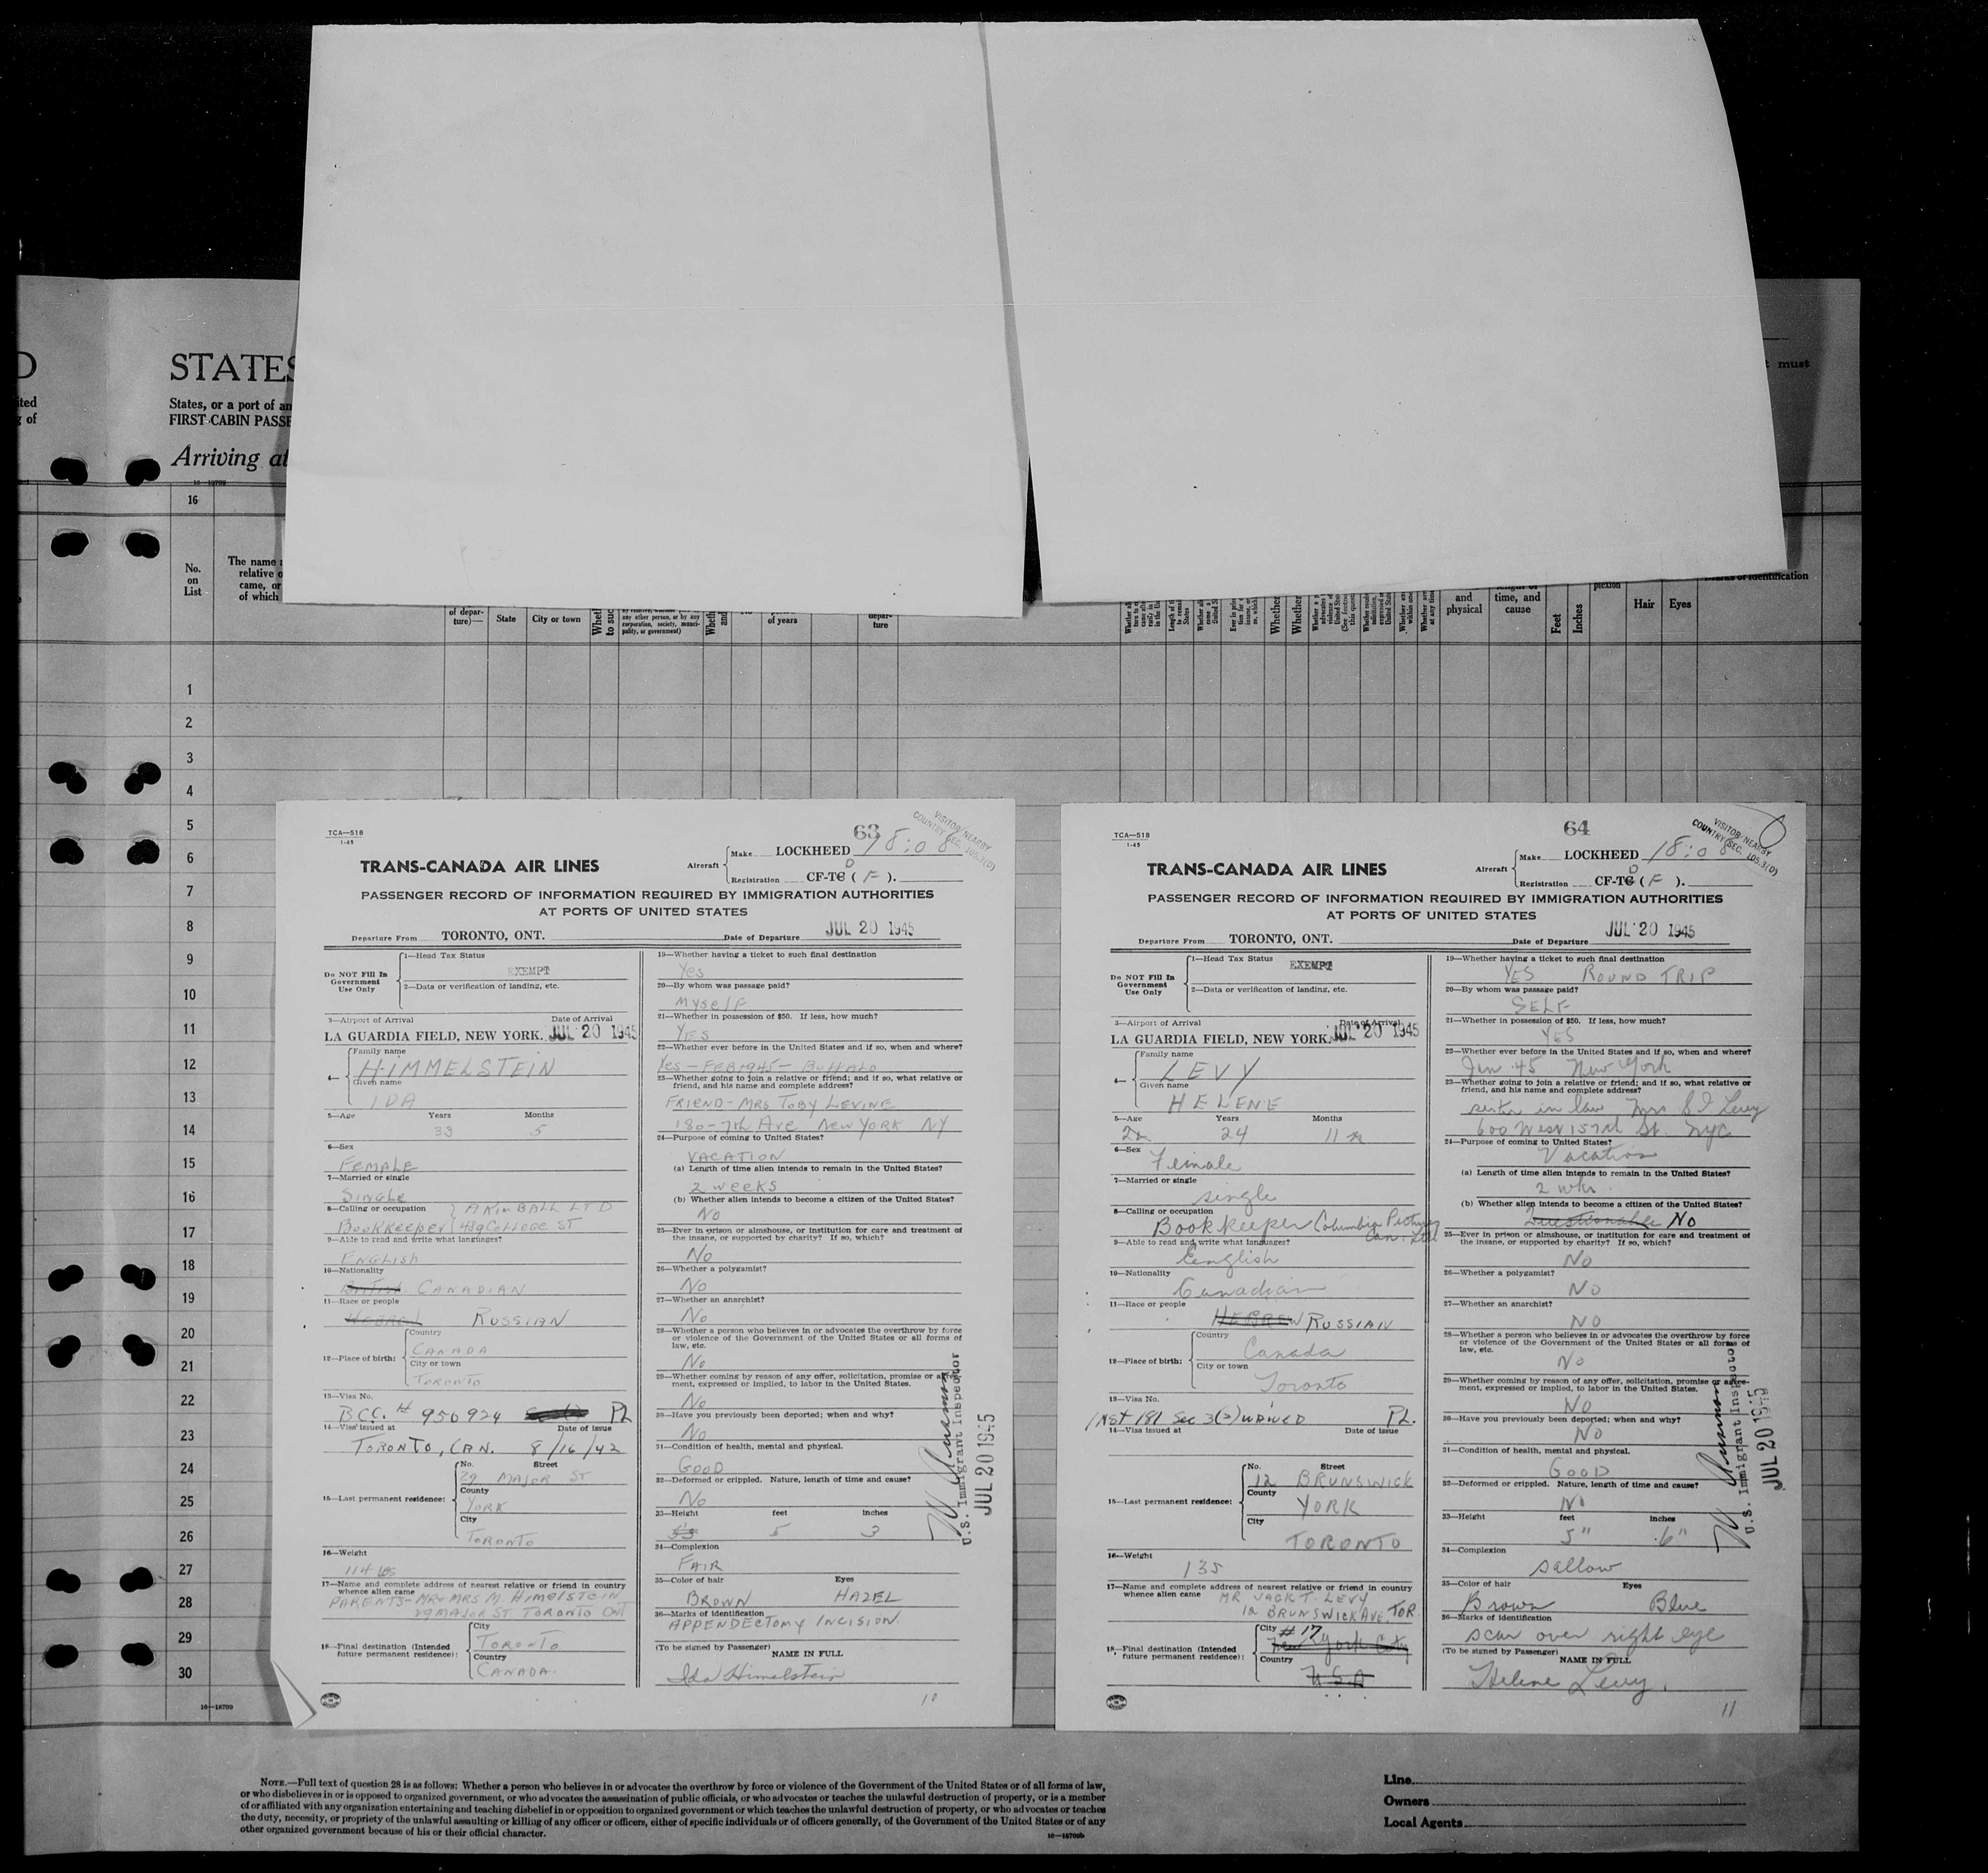 D
ited
g of
STATES
States, or a port of an
FIRST-CABIN PASSE
Arriving at
must
16—18709
16
No.
on
List
The name
relative o
came, or
of which
of depar-
ture)—
State
City or town
Wheth
to suc
any other person, or by any
corporation, society, munici-
pality, or government)
Wheth
and
of years
depar-
ture
Whether
Whether
and
physical
time, and
cause
Feet
Inches
plexion
Hair
Eyes
Marks of identification
1
2
3
4
5
6
7
8
9
10
11
12
13
14
15
16
17
18
19
20
21
22
23
24
25
26
27
28
29
30
16—18709
TCA—518
1-45
63
VISITOR/NEARBY
COUNTRY SEC. 105.3(D)
TRANS-CANADA AIR LINES
Aircraft
Make LOCKHEED 18:08
D
Registration CF-TC ( F ).
PASSENGER RECORD OF INFORMATION REQUIRED BY IMMIGRATION AUTHORITIES
AT PORTS OF UNITED STATES
Departure From TORONTO, ONT. Date of Departure JUL 20 1945
Do NOT Fill In
Government
Use Only
1—Head Tax Status
EXEMPT
2—Data or verification of landing, etc.
3—Airport of Arrival Date of Arrival
LA GUARDIA FIELD, NEW YORK. JUL 20 1945
4—
Family name
HIMMELSTEIN
Given name
IDA
5—Age Years Months
33 5
6—Sex
FEMALE
7—Married or single
SINGLE
8—Calling or occupation A KIMBALL LTD
BOOKKEEPER 489 COLLEGE ST
9—Able to read and write what languages?
ENGLISH
10—Nationality
British CANADIAN
11—Race or people
HEBREW RUSSIAN
12—Place of birth:
Country
CANADA
City or town
TORONTO
13—Visa No.
BCC. # 950924 PL
14—Visa issued at Date of issue
TORONTO, CAN. 8/16/42
15—Last permanent residence:
No. Street
29 MAJOR ST
County
YORK
City
TORONTO
16—Weight
114 lbs
17—Name and complete address of nearest relative or friend in country
whence alien came
PARENTS—MR & MRS M. HIMELSTEIN
29 MAJOR ST TORONTO ONT
18—Final destination (Intended
future permanent residence):
City
TORONTO
Country
CANADA.
19—Whether having a ticket to such final destination
Yes
20—By whom was passage paid?
MYSELF
21—Whether in possession of $50. If less, how much?
YES
22—Whether ever before in the United States and if so, when and where?
Yes — FEB 1945 — BUFFALO
23—Whether going to join a relative or friend; and if so, what relative or
friend, and his name and complete address?
FRIEND—MRS TOBY LEVINE
180-7th Ave NEW YORK NY
24—Purpose of coming to United States?
VACATION
(a) Length of time alien intends to remain in the United States?
2 WEEKS
(b) Whether alien intends to become a citizen of the United States?
No
25—Ever in prison or almshouse, or institution for care and treatment of
the insane, or supported by charity? If so, which?
No
26—Whether a polygamist?
No
27—Whether an anarchist?
No
28—Whether a person who believes in or advocates the overthrow by force
or violence of the Government of the United States or all forms of
law, etc.
No
29—Whether coming by reason of any offer, solicitation, promise or agree-
ment, expressed or implied, to labor in the United States.
No
30—Have you previously been deported; when and why?
No
31—Condition of health, mental and physical.
GOOD
32—Deformed or crippled. Nature, length of time and cause?
No
33—Height feet inches
5 3
34—Complexion
FAIR
35—Color of hair Eyes
BROWN HAZEL
36—Marks of identification
APPENDECTOMY INCISION
(To be signed by Passenger)
NAME IN FULL
Ida Himelstein
10
U.S. Immigrant Inspector
JUL 20 1945
TCA—518
1-45
64
VISITOR/NEARBY
COUNTRY SEC. 105.3(D)
TRANS-CANADA AIR LINES
Aircraft
Make LOCKHEED 18:08
D
Registration CF-TC ( F ).
PASSENGER RECORD OF INFORMATION REQUIRED BY IMMIGRATION AUTHORITIES
AT PORTS OF UNITED STATES
Departure From TORONTO, ONT. Date of Departure JUL 20 1945
Do NOT Fill In
Government
Use Only
1—Head Tax Status
EXEMPT
2—Data or verification of landing, etc.
3—Airport of Arrival Date of Arrival
LA GUARDIA FIELD, NEW YORK. JUL 20 1945
4—
Family name
LEVY
Given name
HELENE
5—Age Years Months
24 11
6—Sex
Female
7—Married or single
single
8—Calling or occupation
Bookkeeper Columbia Pictures
Can. Ltd
9—Able to read and write what languages?
English
10—Nationality
Canadian
11—Race or people
HEBREW RUSSIAN
12—Place of birth:
Country
Canada
City or town
Toronto
13—Visa No.
INST 181 Sec 3(2) WAIVED PL.
14—Visa issued at Date of issue
15—Last permanent residence:
No. Street
12 BRUNSWICK
County
YORK
City
TORONTO
16—Weight
135
17—Name and complete address of nearest relative or friend in country
whence alien came
MR JACK T. LEVY
12 BRUNSWICK AVE. TOR
18—Final destination (Intended
future permanent residence):
City # 17
New York City
Country
U.S.A
19—Whether having a ticket to such final destination
YES ROUND TRIP
20—By whom was passage paid?
SELF
21—Whether in possession of $50. If less, how much?
YES
22—Whether ever before in the United States and if so, when and where?
Jan 45 New York
23—Whether going to join a relative or friend; and if so, what relative or
friend, and his name and complete address?
sister in law Mrs S.I. Levy
600 West 157th St. NYC
24—Purpose of coming to United States?
Vacation
(a) Length of time alien intends to remain in the United States?
2 wks.
(b) Whether alien intends to become a citizen of the United States?
Questionable NO
25—Ever in prison or almshouse, or institution for care and treatment of
the insane, or supported by charity? If so, which?
No
26—Whether a polygamist?
NO
27—Whether an anarchist?
NO
28—Whether a person who believes in or advocates the overthrow by force
or violence of the Government of the United States or all forms of
law, etc.
NO
29—Whether coming by reason of any offer, solicitation, promise or agree-
ment, expressed or implied, to labor in the United States.
NO
30—Have you previously been deported; when and why?
NO
31—Condition of health, mental and physical.
GOOD
32—Deformed or crippled. Nature, length of time and cause?
NO
33—Height feet inches
5" 6"
34—Complexion
sallow
35—Color of hair Eyes
Brown Blue
36—Marks of identification
scar over right eye
(To be signed by Passenger)
NAME IN FULL
Helene Levy.
11
U.S. Immigrant Inspector
JUL 20 1945
NOTE.—Full text of question 28 is as follows: Whether a person who believes in or advocates the overthrow by force or violence of the Government of the United States or of all forms of law,
or who disbelieves in or is opposed to organized government, or who advocates the assassination of public officials, or who advocates or teaches the unlawful destruction of property, or is a member
of or affiliated with any organization entertaining and teaching disbelief in or opposition to organized government or which teaches the unlawful destruction of property, or who advocates or teaches
the duty, necessity, or propriety of the unlawful assaulting or killing of any officer or officers, either of specific individuals or of officers generally, of the Government of the United States or of any
other organized government because of his or their official character.
16—18709b
Line
Owners
Local Agents